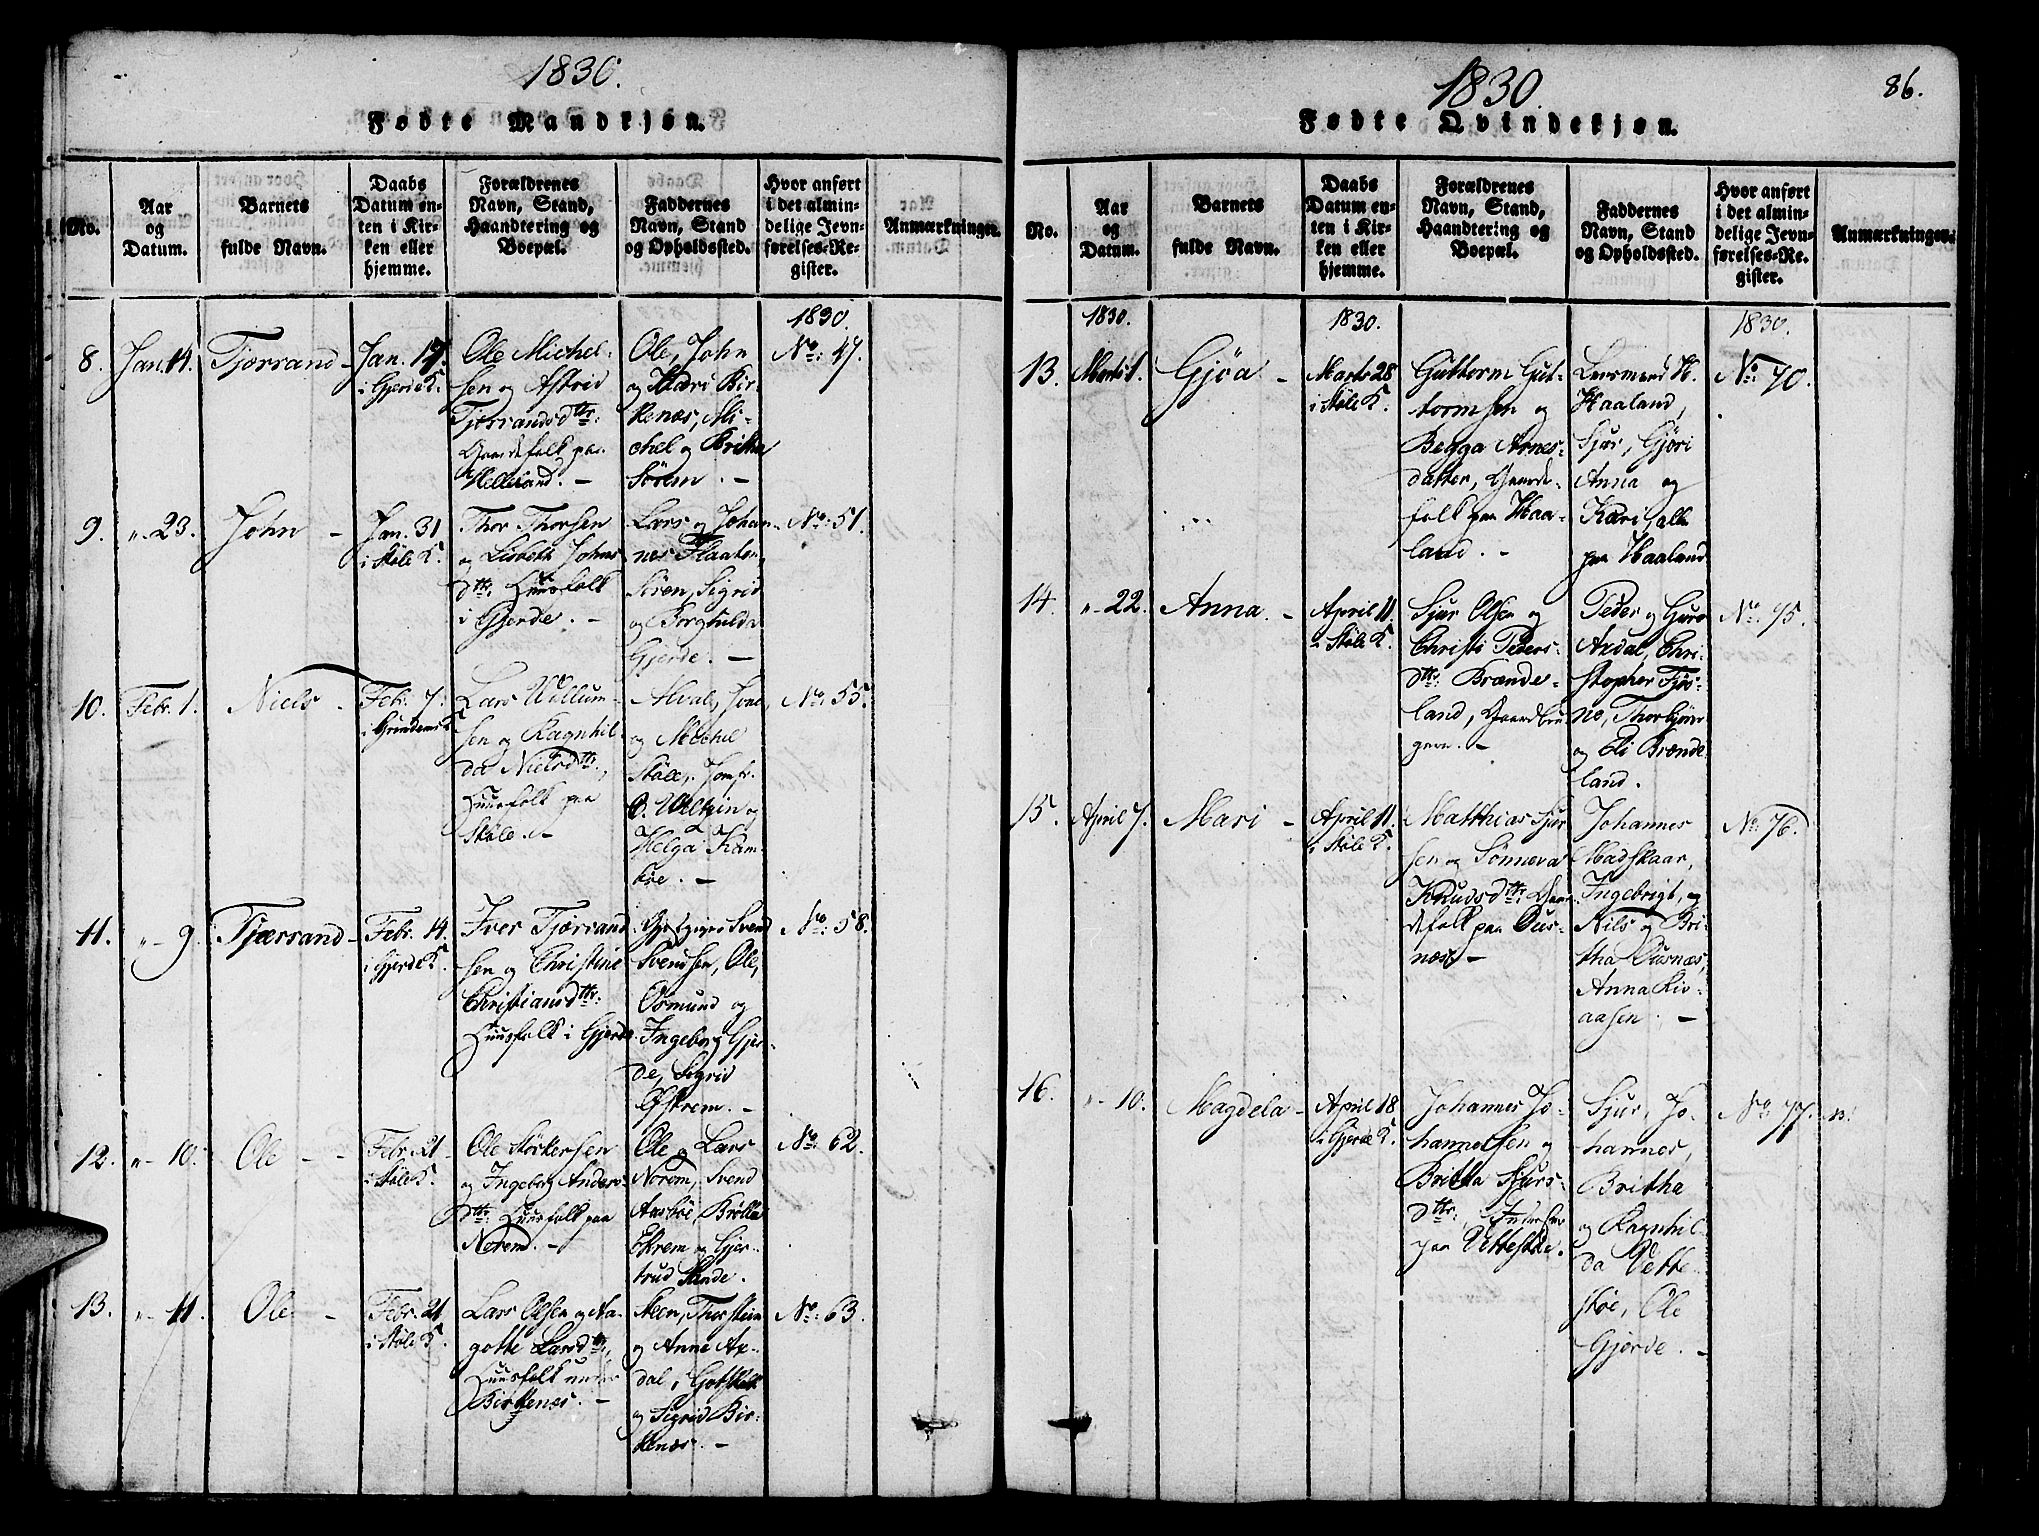 1830.
Fødte Mandkjøn.
No.
Aar
og
Datum.
Barnets
fulde Navn.
Daabs
Datum en-
ten i Kir-
ken eller
hjemme.
Forældrenes
Navn, Stand,
Haandtering og
Boepæl.
Faddernes
Navn, Stand
og Opholdssted.
Hvor anført
i det almin-
delige Jevn-
førelses-Re-
gister.
Anmærkninger.
1830.
8.
Jan. 14.
Tjærrand
Jan. 17.
i Gjerde K.
Ole Michel-
sen og Astrid
Tjerrandsdtr:
Gaardefolk paa
Hellesand. -
Ole, John
og Kari Bir-
kenæs, Mi-
chel og Britha
Sörem. -
No: 47.
9.
" 23.
John -
Jan. 31
i Støle K.
Thor Thorsen
og Lisbeth Johns
dtr: Huusfolk
i Gjerde. -
Lars og Johan-
nes Flaaten,
Sören, Sigrid
og Borghilda
Gjerde. -
No: 51.
10.
Febr. 1.
Niels -
Febr. 7.
i Grindems K.
Lars Willum-
sen og Ragnhil-
da Nielsdtr:,
Huusfolk paa
Støle. -
og Michel
Støle, Jomfr.
Helga Kam-
böe. -
No: 55.
11.
" 9.
Tjærrand -
Febr. 14.
i Gjerde K.
Iver Tjærrand
sen og Christine
Christiansdtr:
Huusfolk i Gjerde.
Gjestgiver Svend
Svendsen, Ole,
Osmund og
Ingeborg Gjer-
de, Sigrid
Østrem. -
No: 58.
12.
" 10.
Ole - -
Febr. 21
i Støle K.
Ole Störkersen
og Ingeborg Anders-
dtr: Huusfolk paa
Norem. -
Ole og Lars
Norem, Svend
Aasböe, Brölla
Ekrem og Gjer-
trud Sande.
No: 62.
13.
" 11.
Ole -
Febr. 21
i Støle K.
Lars Olsen og Aa-
gotte Larsdtr:,
Huusfolk under
Birkenæs. -
Steen, Thorstein
og Anne Ax-
dal,
og Sigrid Bir-
kenæs. -
No: 63.
1830.
86.
Fødte Qvindekjøn.
No.
Aar
og
Datum.
Barnets
fulde Navn.
Daabs
Datum en-
ten i Kir-
ken eller
hjemme.
Forældrenes
Navn, Stand,
Haandtering og
Boepæl.
Faddernes
Navn, Stand
og Opholdssted.
Hvor anført
i det almin-
delige Jevn-
førelses-Re-
gister.
Anmærkninger.
1830.
1830.
1830.
13.
Marts 1.
Gjøa -
Marts 28
i Støle K.
Guttorm Gut-
tormsen og
Begga Arnes-
datter, Gaarde-
folk paa Haa-
land. -
Lensmand H.
Haaland,
Sjur, Gjöri
Anna og
Kari alle
paa Haaland
No: 70.
14.
" 22.
Anna -
April 11.
i Støle K.
Sjur Olsen og
Christi Peders-
dtr: Brænde-
land, Gaardbru-
gere. -
Peder og Guro
Axdal, Chri-
stopher Fjös-
ne, Thorbjörn
og Eli Brænde
land.
No: 75.
15.
April 7.
Mari -
April 11.
i Støle K.
Matthias Sjur
sen og Sønneva
Knudsdtr: Gaar-
defolk paa Dues-
næs -
Johannes
Madskaar,
Ingebrigt, og
Nils og Bri-
tha Duesnæs,
Anna Liv-
aasen. -
No: 76.
16.
" 10.
Magdela -
April 18
i Gjerde K.
Johannes Jo-
hannessen og
Britha Sjurs-
dtr:, Inderster
paa Vettestöe.
Sjur, Jo-
hannes,
Britha
og Ragnhil-
da Vette-
støe, Ole
Gjerde. -
No: 77.